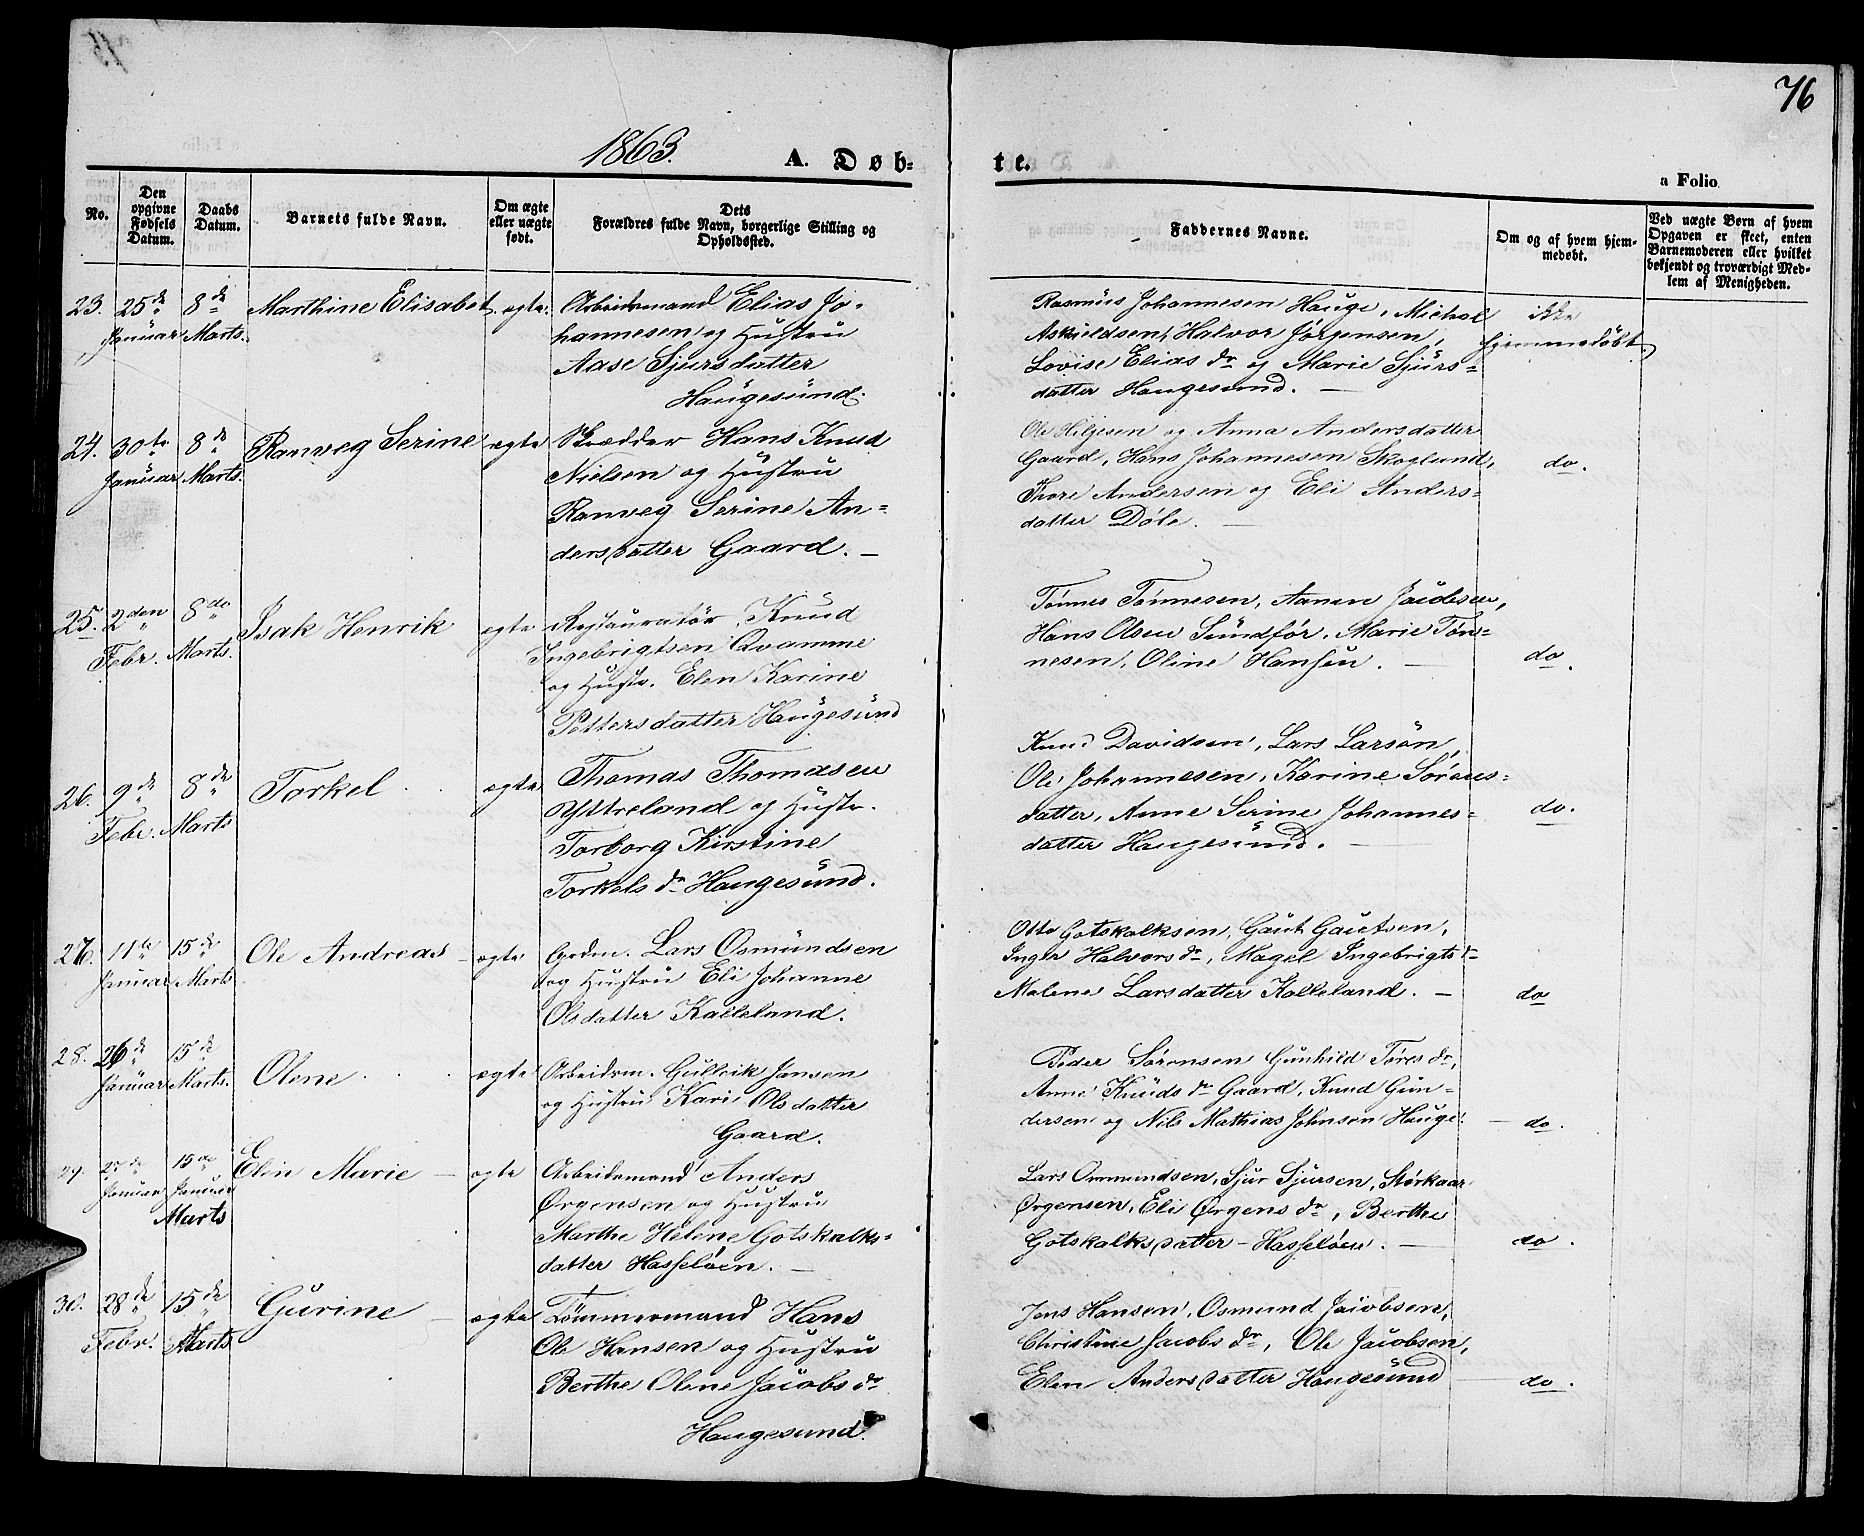 76
1863.
A. Døb-
te.
a Folio
No.
Den
opgivne
Fødsels
Datum.
Daabs
Datum.
Barnets fulde Navn.
Om ægte
eller uægte
født.
Dets
Forældres fulde Navn, borgerlige Stilling og
Opholdssted.
Faddernes Navne.
Om og af hvem hjem-
medøbt.
Ved uægte Børn af hvem
Opgaven er skeet, enten
Barnemoderen eller hvilket
bekjendt og troværdigt Med-
lem af Menigheden.
23. 25de Januar 8de Marts. Marthine Elisabet ægte.
Arbeidsmand Elias Jo-
hannesen og Hustru
Aase Sjursdatter
Haugesund.
Rasmus Johannesen Hauge, Michal
Askieldsen, Halvor Jørgensen,
Lovise Elias dr og Marie Sjurs-
datter Haugesund. —
ikke
hjemmedøbt.
24. 30te Januar 8de Marts. Ranveg Serine ægte
Skrædder Hans Knud
Nielsen og Hustru
Ranveg Serine An-
dersdatter Gaard. —
Ole Hiljesen og Anna Andersdatter
Gaard, Hans Johannesen Skoglund,
Thore Andersen og Eli Anders-
datter Døle. —
do.
25. 2den Febr. 8de Marts. Isak Henrik ægte
Restauratør Knud
Ingebrigtsen Qvamme
og Hustr. Elen Karine
Pettersdatter Haugesund
Tønnes Tønnesen, Aanen
Hans Olsen Sundfør, Marie Tøn-
nesen, Oline Hansen. —
do.
26. 9de Febr. 8de Marts Torkel ægte
Thomas Thomasen
Yttreland og Hustr.
Torborg Kirstine
Torkels dr Haugesund.
Knud Davidsen, Lars Larsøn,
Ole Johannesen, Karine Sørens-
datter, Anne Serine Johannes-
datter Haugesund. —
do.
27. 11te Januar 15de Marts Ole Andreas ægte
Grdm. Lars Osmundsen
og Hustru Eli Johanne
Olsdatter Kalleland.
Otto Gotskalksen, Gaut Gautsen,
Inger Halvors dr, Magel Ingebrigts dr
Malene Larsdatter Kalleland. —
do
28. 26de Januar 15de Marts. Olene ægte
Arbeidsm. Gullvik Jansen
og Hustru Kari Olsdatter
Gaard.
Peder Sørensen Gunhild Tores dr,
Anne Knuds dr Gaard, Knud Gun-
dersen og Nils Mathias Johnsen Hauge.
do.
29. 27de Januar 15de Januar Marts Elen Marie — ægte
Arbeidsmand Anders
Ørgensen og Hustru
Marthe Helene Gotskalks-
datter Hasseløen. —
Lars Ommundsen, Sjur Sjursen, Størkaar
Ørgensen, Eli Ørgens dr, Berthe
Gotskalksdatter – Hasseløen. —
do.
30. 28de Febr. 15de Marts Gurine — ægte
Tømmermand Hans
Ole Hansen og Hustru
Berthe Olene Jacobs dr
Haugesund.
Jens Hansen, Osmund Jacobsen,
Christine Jacobs dr, Ole Jacobsen,
Elen Andersdatter Haugesund
do.